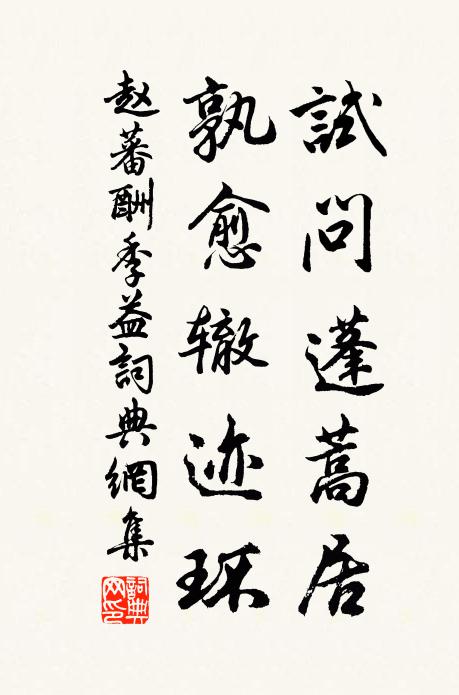 試問蓬蒿居
孰愈辙迹环
赵蕃酬季益詞典網集
詞典网印